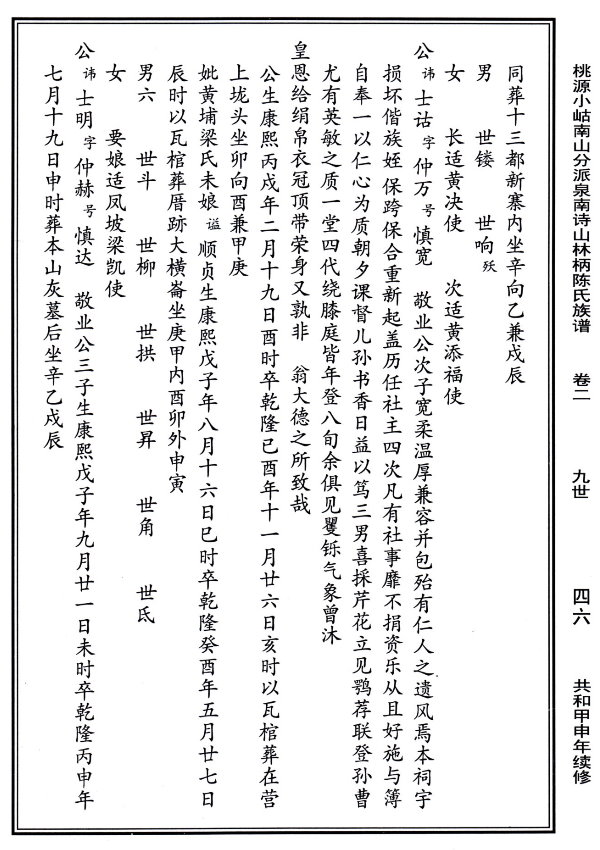 桃源小岵南山分派泉南诗山林柄陈氏族谱 卷二 九世 四六 共和甲申年续修
同葬十三都新寨内坐辛向乙兼戍辰
男 世镂 世响 殀
女 长适黄决使 次适黄添福使
公 讳 士诂 字 仲万 号 慎宽 敬业公次子宽柔温厚兼容并包殆有仁人之遗风焉本祠宇
损坏偕族姪 保跨保合重新起盖历任社主四次凡有社事靡不捐资乐从且好施与簿
自奉一以仁心为质朝夕课督儿孙书香日益以笃三男喜採芹花立见鹗荐联登孙曹
尤有英敏之质一堂四代绕膝庭皆年登八旬余俱见矍铄气象曾沐
皇恩给绢帛衣冠顶带荣身又孰非 翁大德之所致哉
公生康熙丙戌年二月十九日酉时卒乾隆己酉年十一月廿六日亥时以瓦棺葬在营
上垅头坐卯向酉兼甲庚
妣黄埔梁氏未娘 谥 顺贞生康熙戊子年八月十六日巳时卒乾隆癸酉年五月廿七日
辰时以瓦棺葬厝跡大横崙坐庚甲内酉卯外申寅
男六 世斗 世柳 世拱 世昇 世角 世氐
女 要娘适凤坡梁凯使
公 讳 士明 字 仲赫 号 慎达 敬业公三子生康熙戊子年九月廿一日未时卒乾隆丙申年
七月十九日申时葬本山灰墓后坐辛乙戍辰